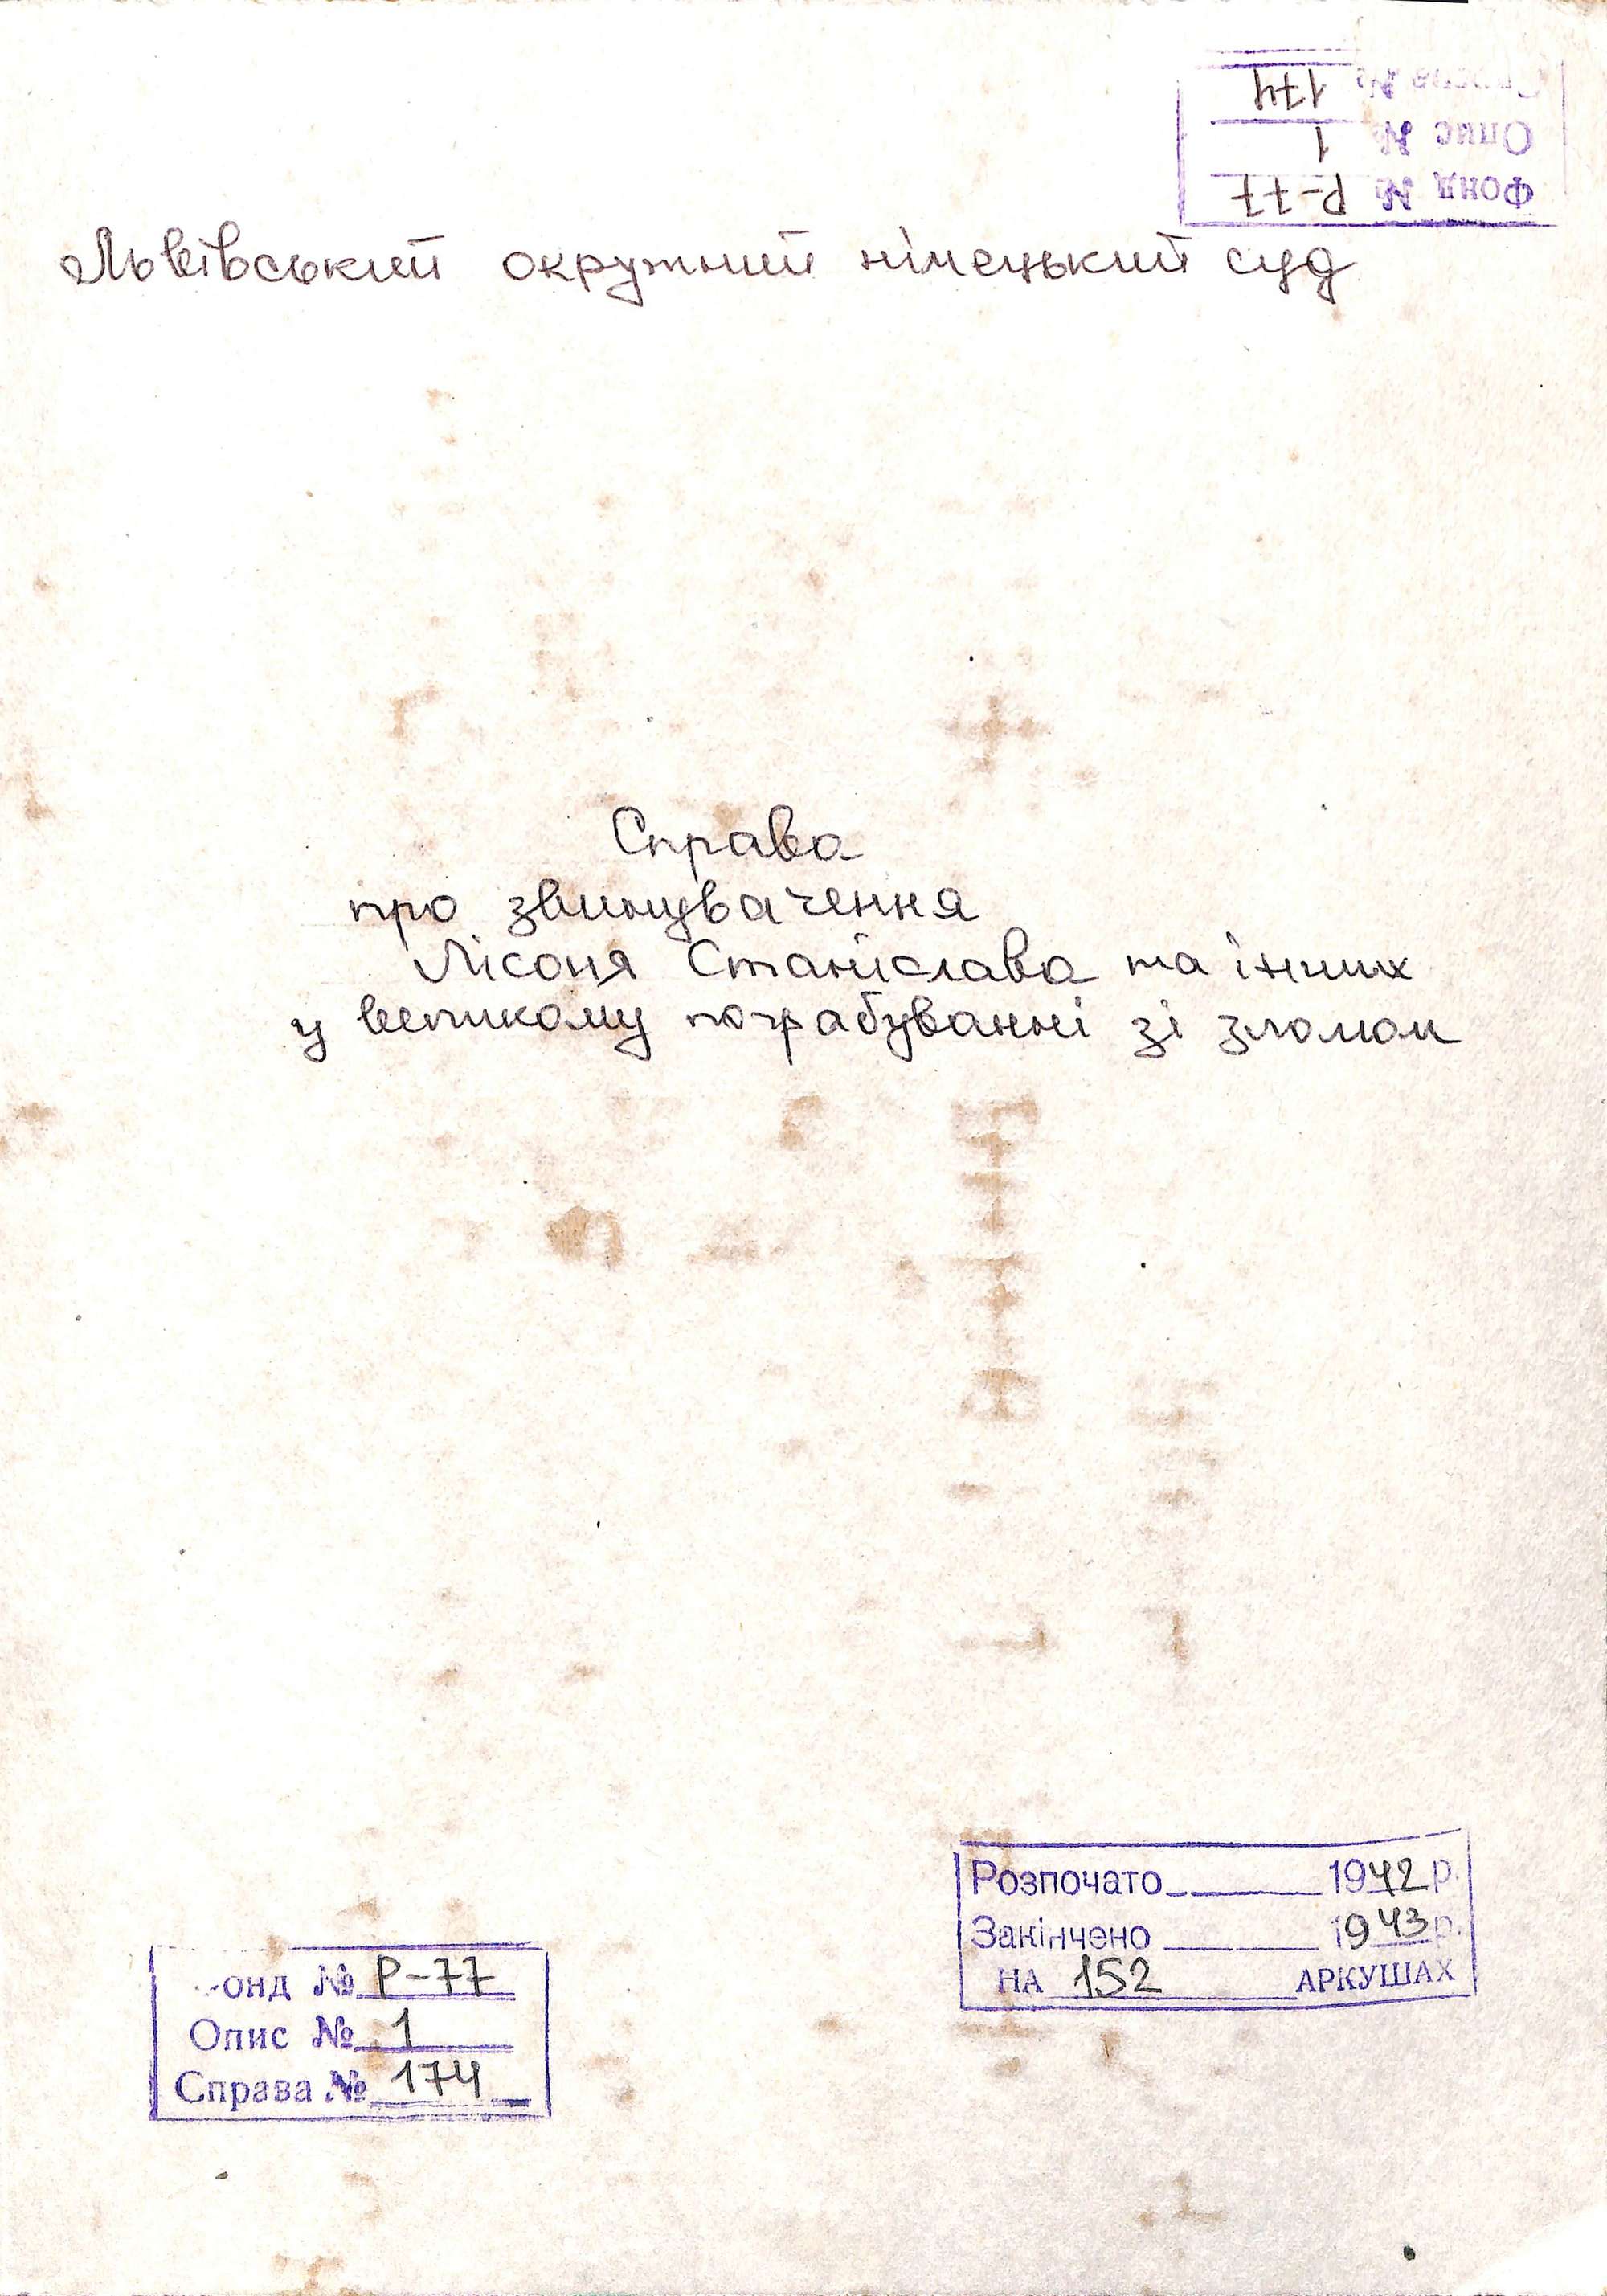 Фонд № Р-77
Опис № 1
Справа № 174
Львівський окружний німецький суд
Справа
про звинувачення
Лісоня Станіслава та інших
у великому пограбуванні зі зломом
Розпочато 1942 р.
Закінчено 1943 р.
НА 152 АРКУШАХ
Фонд № Р-77
Опис № 1
Справа № 174